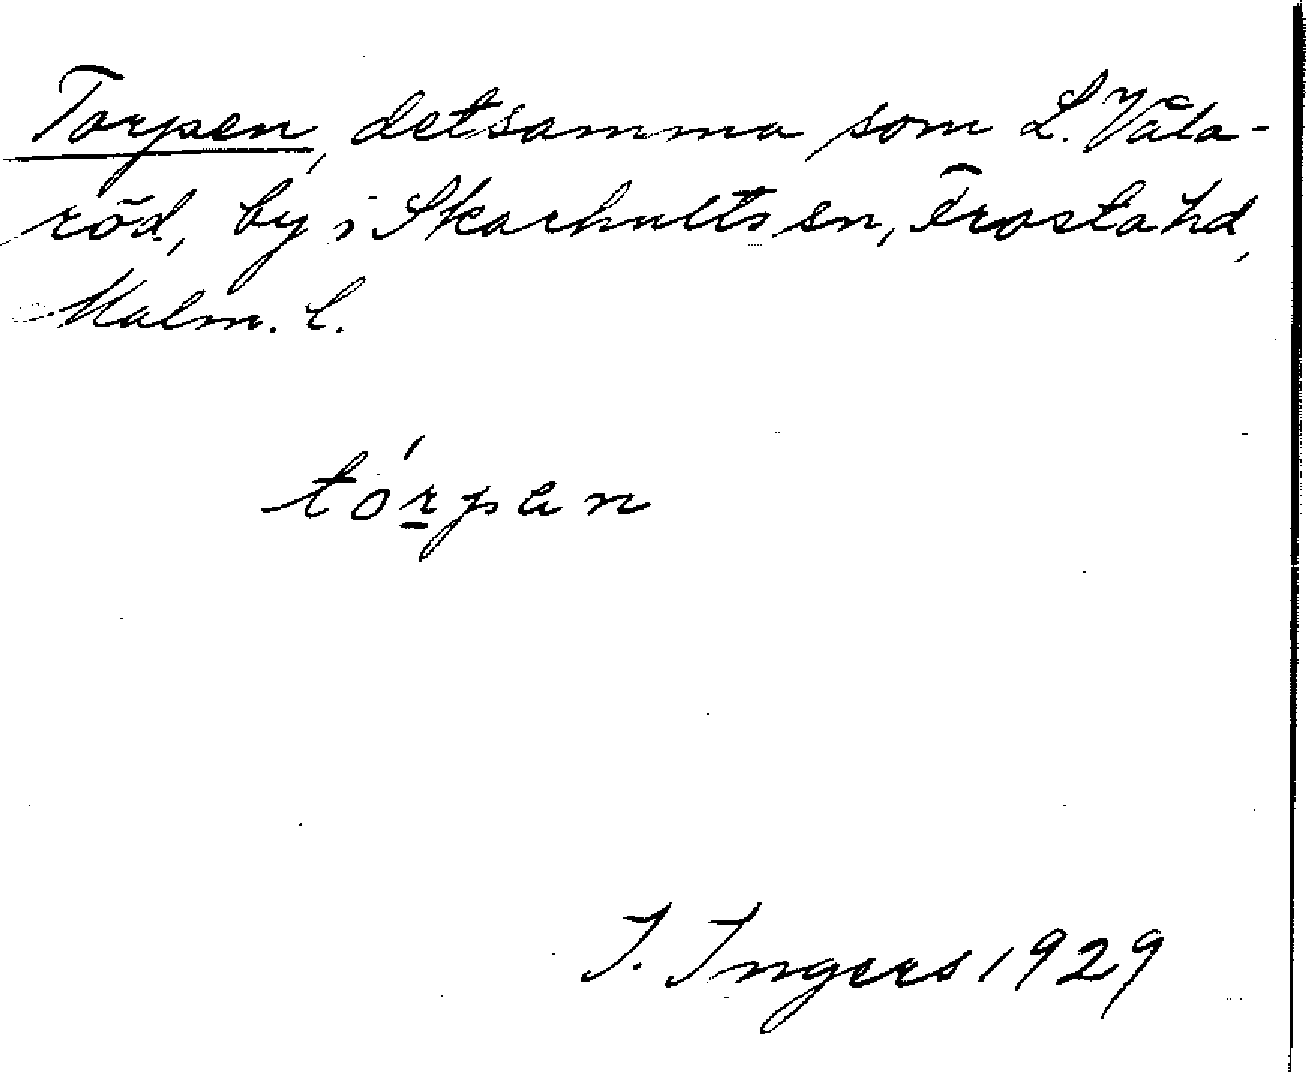 Torpen, detsamma som L. Våla-
röd, by i Skarhults sn, Frosta hd,
Malm. l.
tórpan
I. Ingers 1929